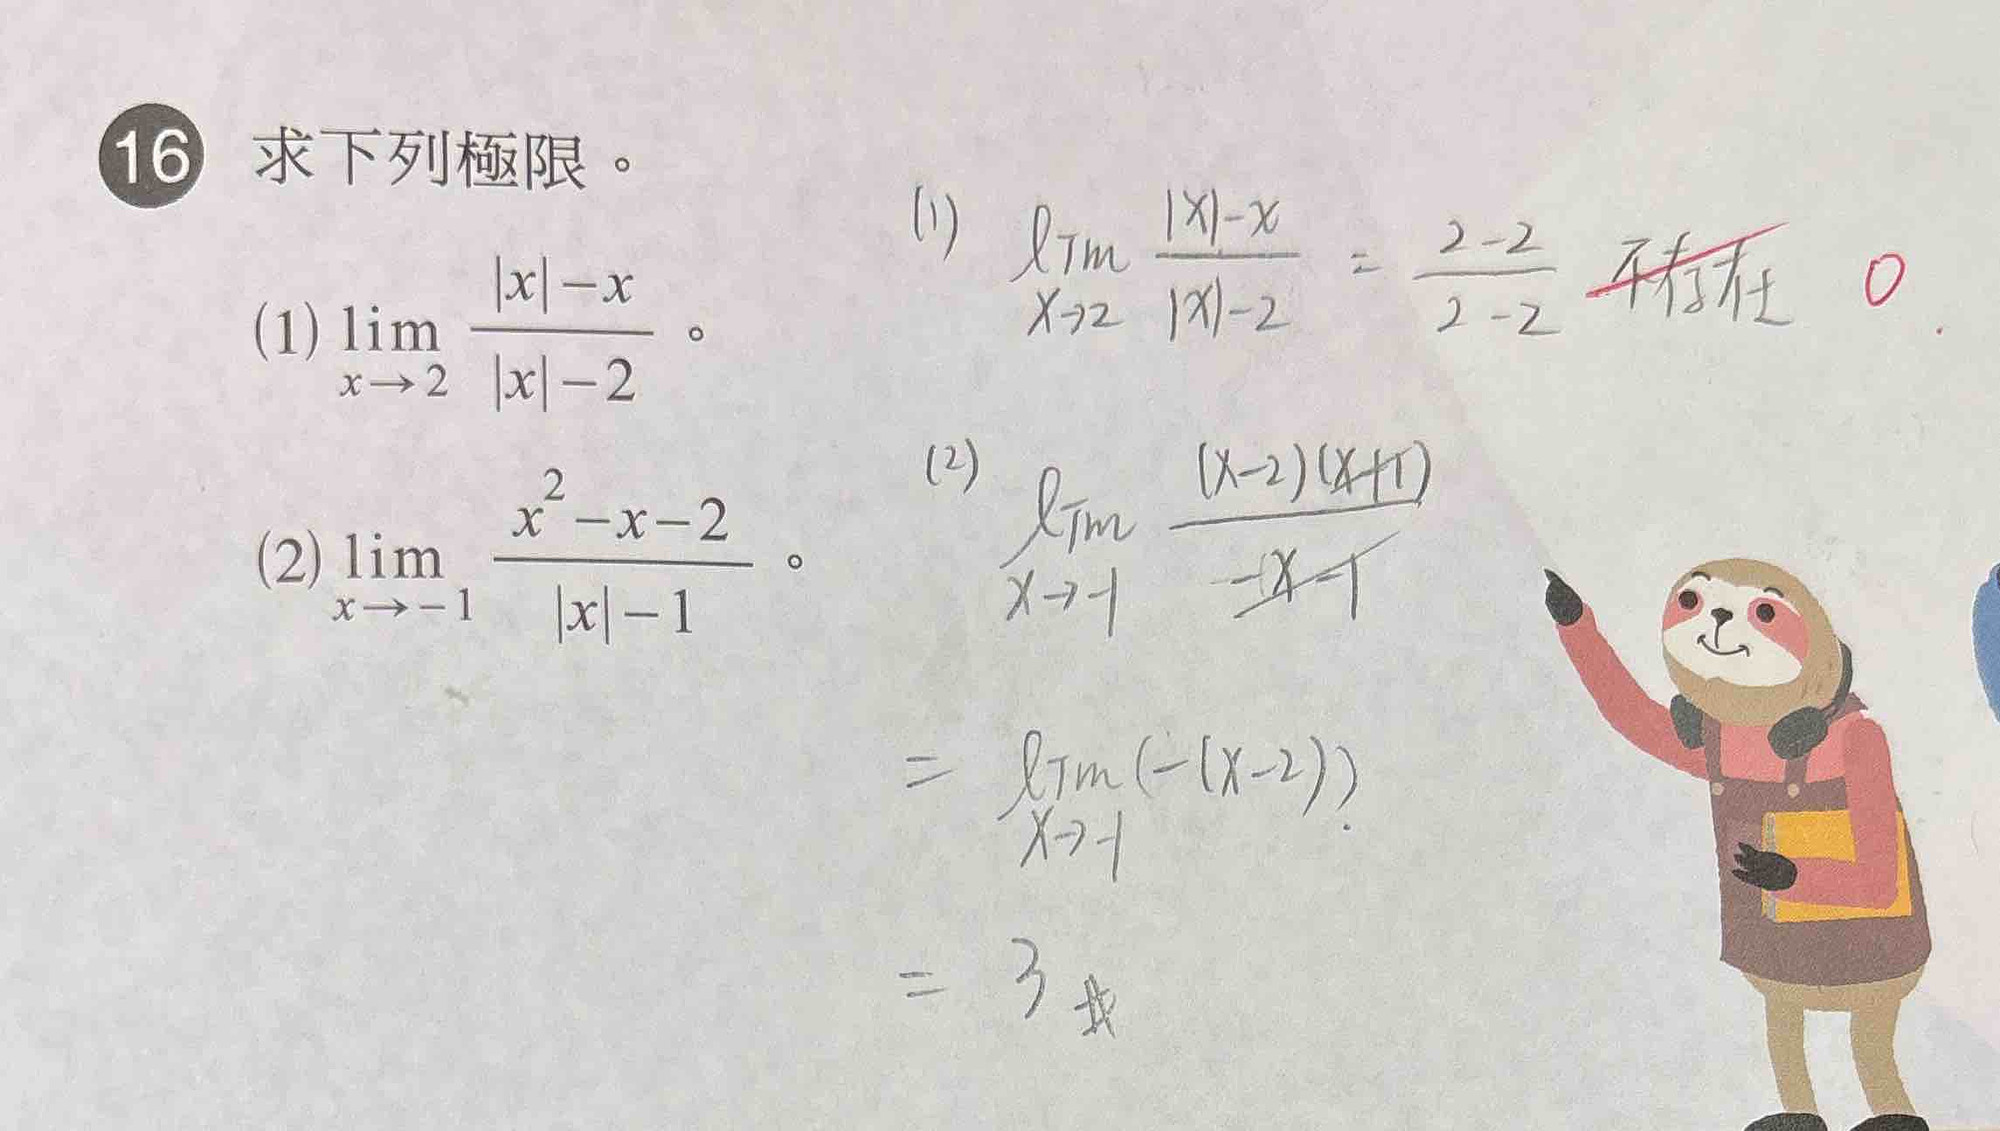 16 求下列極限。
(1) lim x→2 |x|−x / |x|−2 。
(2) lim x→−1 x²−x−2 / |x|−1 。
(1) lim x→2 |x|−x / |x|−2 = 2−2 / 2−2 不存在 0
(2) lim x→−1 (x−2)(x+1) / −x−1
= lim x→−1 (−(x−2))
= 3 #